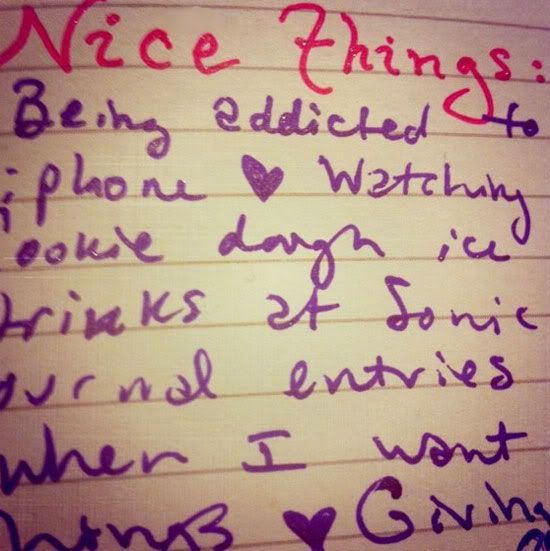 Nice Things:
Being addicted to
iphone ♥ Watching
ookie dough ice
drinks at Sonic
ournal entries
when I want
♥ Giving